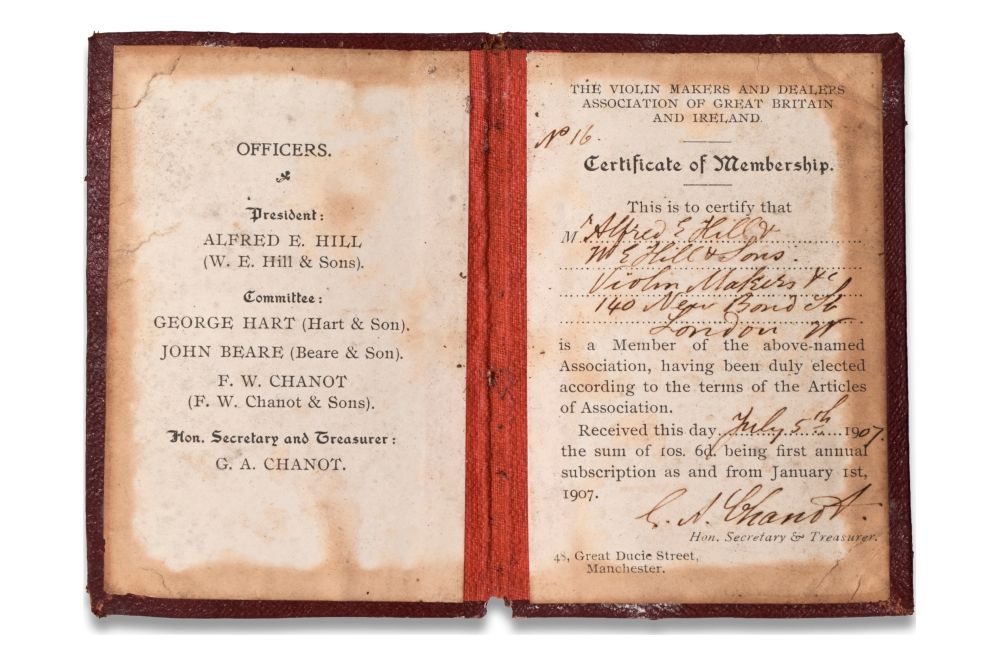 OFFICERS.
President:
ALFRED E. HILL
(W. E. Hill & Sons).
Committee:
GEORGE HART (Hart & Son).
JOHN BEARE (Beare & Son).
F. W. CHANOT
(F. W. Chanot & Sons).
Hon. Secretary and Treasurer:
G. A. CHANOT.
THE VIOLIN MAKERS AND DEALERS
ASSOCIATION OF GREAT BRITAIN
AND IRELAND.
No 16.
Certificate of Membership.
This is to certify that
Mr Alfred E Hill &
W E Hill & Sons.
Violin Makers &c
140 New Bond St
London W
is a Member of the above-named
Association, having been duly elected
according to the terms of the Articles
of Association.
Received this day July 5th 1907.
the sum of 10s. 6d. being first annual
subscription as and from January 1st,
1907.
G. A. Chanot.
Hon. Secretary & Treasurer.
48, Great Ducie Street,
Manchester.